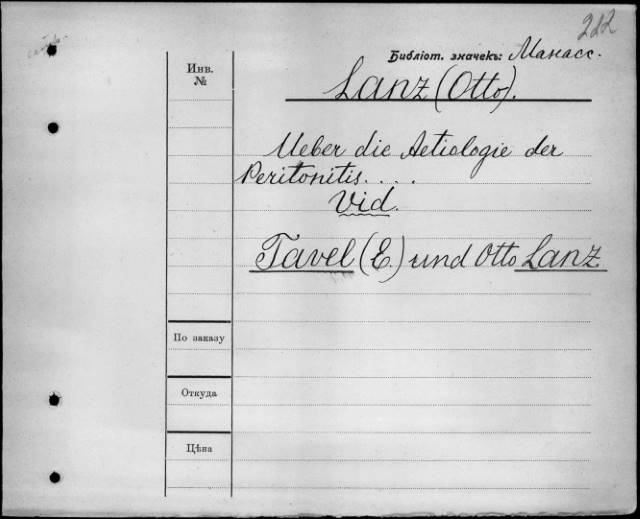 222
Библіот. значекъ: Манасс.
Инв.
№
Lanz (Otto).
Ueber die Aetiologie der
Peritonitis....
Vid.
Tavel (E.) und Otto Lanz
По заказу
Откуда
Цѣна